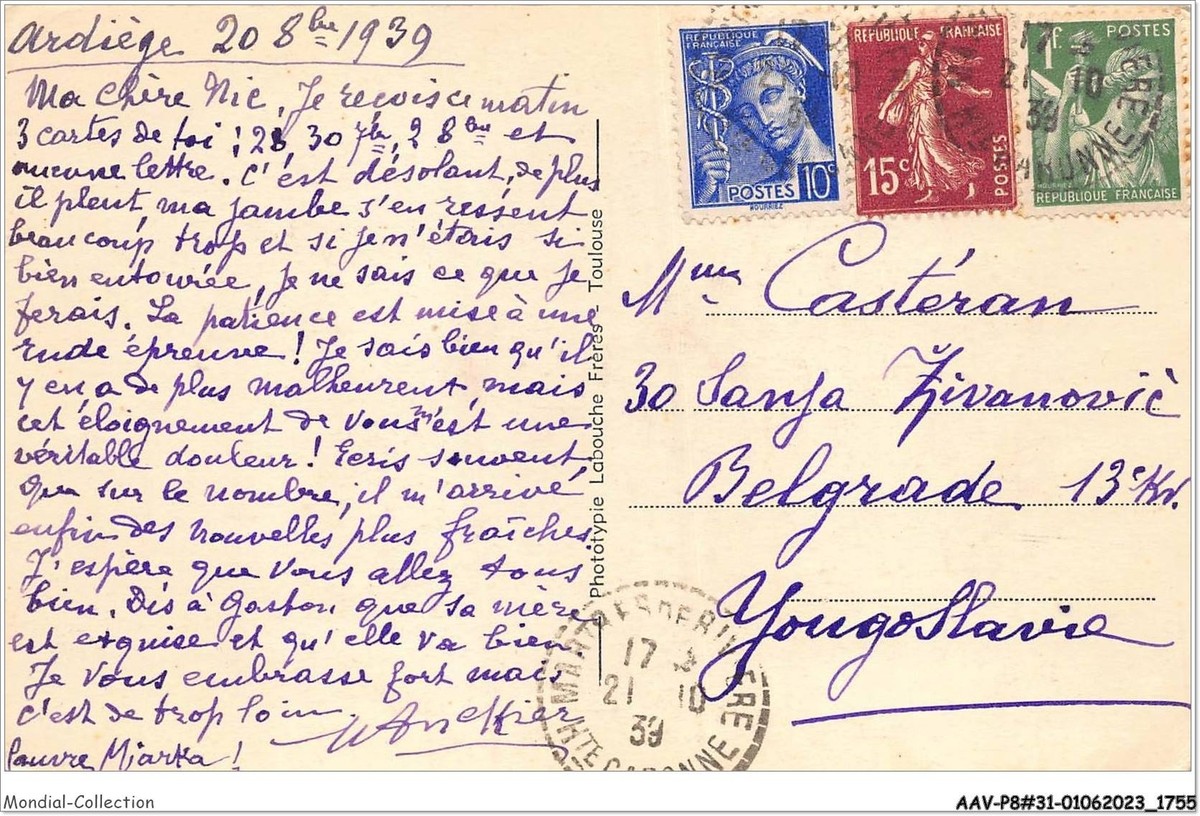 Ardiège 20 8bre 1939
Ma chère Nic, Je reçois ce matin
3 cartes de toi : 28, 30 7bre, 2 8bre et
aucune lettre. C'est désolant, de plus
il pleut, ma jambe s'en ressent
beaucoup trop et si je n'étais si
bien entourée, je ne sais ce que je
ferais. La patience est mise à une
rude épreuve ! Je sais bien qu'il
y en a de plus malheureux, mais
cet éloignement de vous m'est une
véritable douleur ! Ecris souvent,
que sur le nombre, il m'arrive
enfin des nouvelles plus fraîches.
J'espère que vous allez tous
bien. Dis à Gaston que sa mère
est exquise et qu'elle va bien
Je vous embrasse fort mais
c'est de trop loin.
Pauvre Miarka !
Phototypie Labouche Frères - Toulouse
RÉPUBLIQUE FRANÇAISE
POSTES 10c
RÉPUBLIQUE FRANÇAISE
15c
POSTES
1f. POSTES
RÉPUBLIQUE FRANÇAISE
17
21 10
39
Mme Castéran
30 Sanja Živanović
Belgrade 13e Kv.
Yougoslavie
MARTRES DE RIVIERE
17
21 10
39
HTE GARONNE
Mondial-Collection
AAV-P8#31-01062023_1755